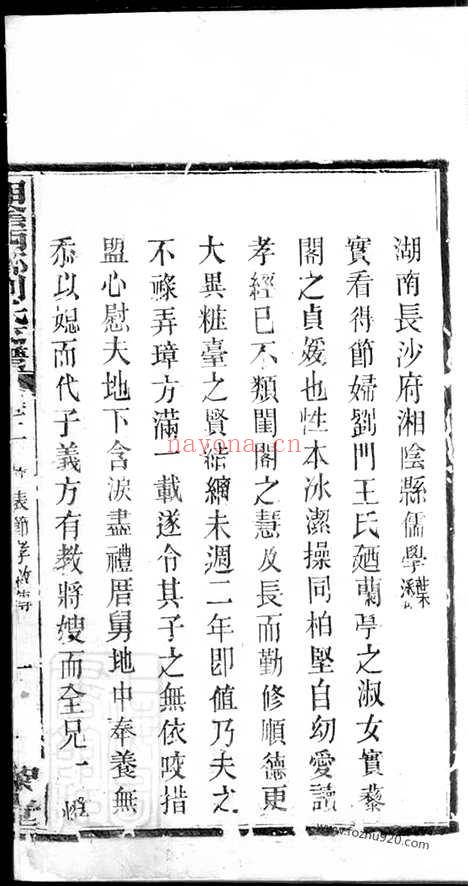 湖南長沙府湘陰縣儒學
實看得節婦劉門王氏廼蘭亭之淑女實藜
閣之貞媛也性本冰潔操同柏堅自幼愛讀
孝經已不類閨閣之慧及長而勤修順德更
大異粧臺之賢結縭未週二年即値乃夫之
不祿弄璋方滿一載遂令其子之無依咬措
盟心慰夫地下含淚盡禮厝舅地中奉養無
忝以媳而代子義方有教將嫂而全兄一
卷二
表節孝
一
nayona.cn
www.fozhu920.com